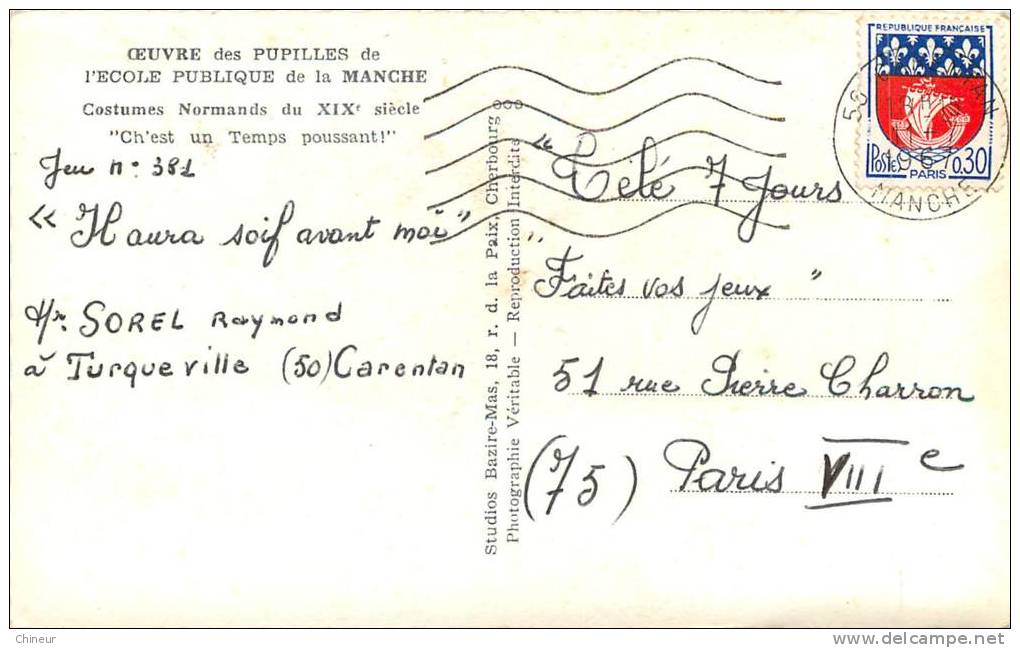 ŒUVRE des PUPILLES de
l'ECOLE PUBLIQUE de la MANCHE
Costumes Normands du XIXe siècle
"Ch'est un Temps poussant!"
Jeu n° 381
« Il aura soif avant moi »
Mr SOREL Raymond
à Turqueville (50) Carentan
Studios Bazire-Mas, 18, r. d. la Paix, Cherbourg
Photographie Véritable — Reproduction Interdite
REPUBLIQUE FRANÇAISE
POSTES 0,30
PARIS
1967
MANCHE
"Télé 7 Jours"
Faites vos jeux"
51 rue Pierre Charron
(75) Paris VIIIe
Chineur
delcampe.net